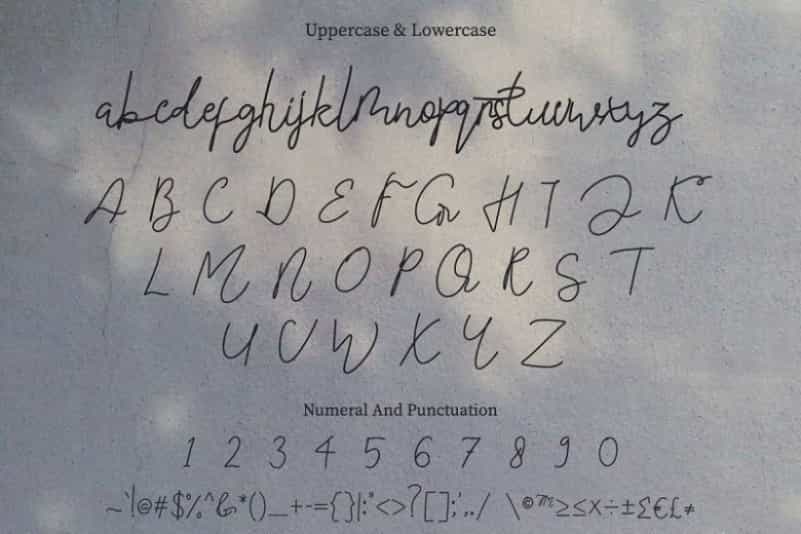 Uppercase & Lowercase
abcdefghijklmnopqrstuvwxyz
A B C D E F G H I J K
L M N O P Q R S T
U V W X Y Z
Numeral And Punctuation
1 2 3 4 5 6 7 8 9 0
~`!@#$%^&*()_+-={}|:"<>?[];',./ \©™≥≤×÷±£€£≠